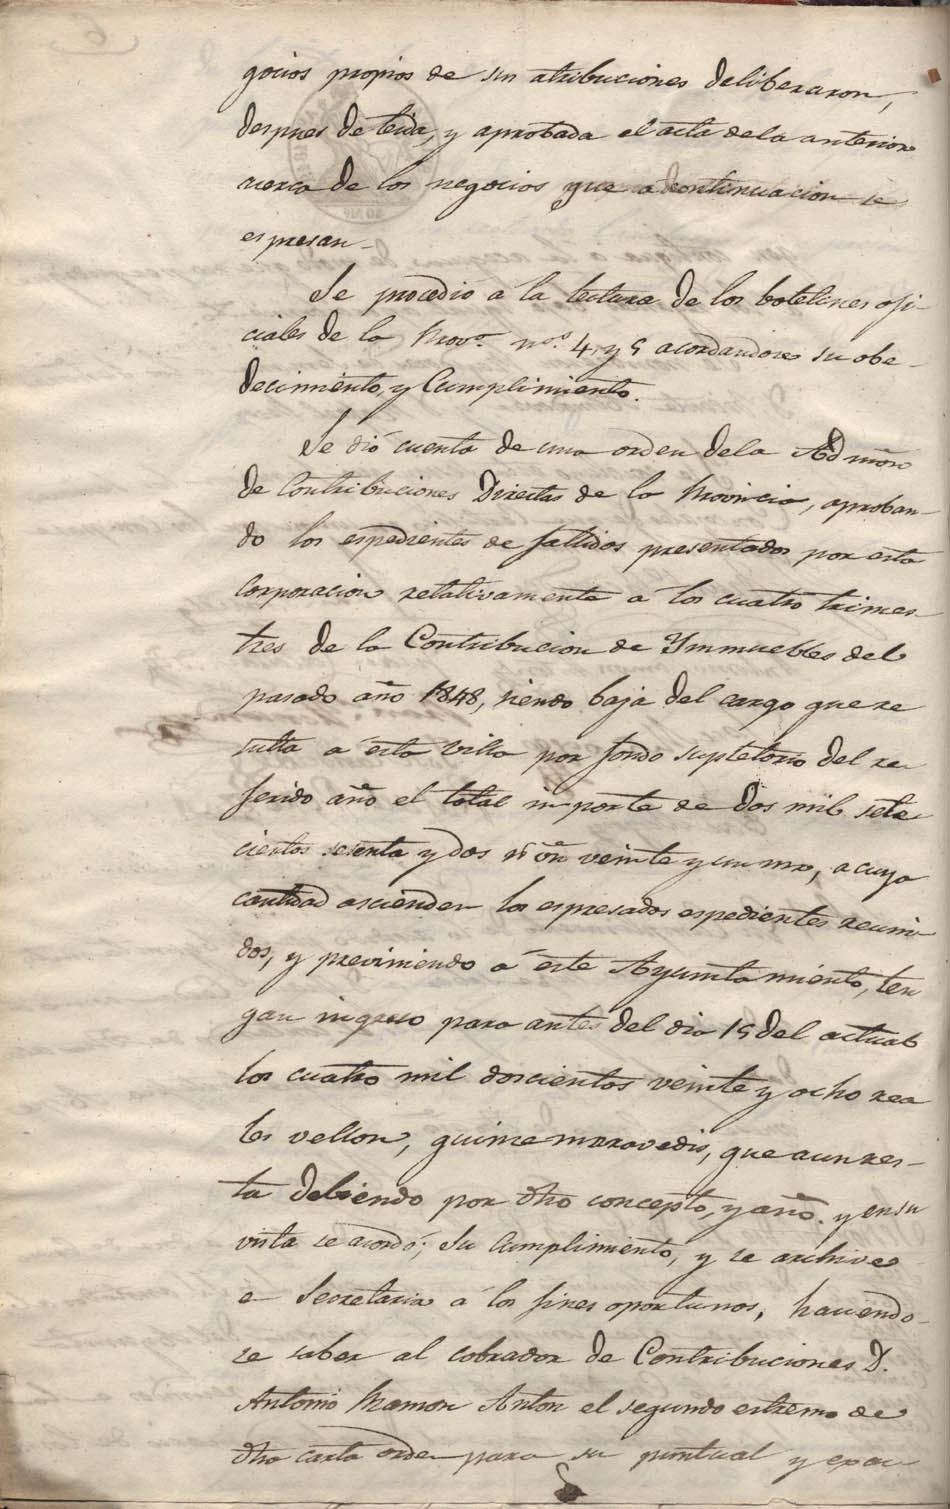 gocios propios de sus atribuciones deliberaron,
despues de leida, y aprobada el acta dela anterior
acerca de los negocios que a continuacion se
espresan-
Se procedió a la lectura de los boletines ofi-
ciales de la Provª. nos. 4, y 5 acordandose su obe-
decimiento, y Cumplimiento.
Se dió cuenta de una orden dela Admon
de Contribuciones Directas de la Provincia, aproban-
do los espedientes de fallidos presentados por esta
Corporacion relativamente a los cuatro trimes-
tres de la Contribucion de Ynmuebles del
pasado año 1848, siendo baja del cargo que re
sulta a esta villa por fondo supletorio del re
ferido año el total importe de dos mil sete
cientos sesenta y dos rs. von veinte y un mrs, a cuya
cantidad ascienden los espresados espedientes reuni
dos, y previniendo a este Ayuntamiento, ten
gan ingreso para antes del dia 15 del actual
los cuatro mil doscientos veinte y ocho rea
les vellon, quince maravedis, que aun res-
ta debiendo por dho concepto, y año. y en su
vista se acordó; Su Cumplimiento, y se archive
e Secretaria a los fines oportunos, haciendo-
se saber al cobrador de Contribuciones D.
Antonio Mamon Anton el segundo estremo de
dha carta orden para su puntual y exac